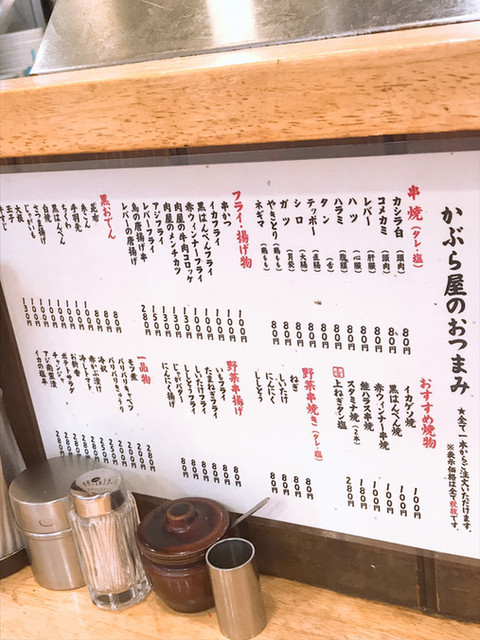 かぶら屋のおつまみ
★全て一本からご注文いただけます。
※表示価格は全て税抜です。
串焼(タレ・塩)
カシラ白(頭肉) 80円
コメカミ(頭肉) 80円
レバー(肝臓) 80円
ハツ(心臓) 80円
ハラミ(腹膜) 80円
タン(舌) 80円
テッポー(直腸) 80円
シロ(大腸) 80円
ガツ(胃袋) 80円
やきとり(鶏もも) 80円
ネギマ(鶏もも) 80円
フライ・揚げ物
串かつ 100円
イカフライ 100円
黒はんぺんフライ 100円
赤ウィンナーフライ 100円
肉屋の牛肉コロッケ 130円
肉屋のメンチカツ 130円
アジフライ 150円
レバーフライ
鳥の唐揚げ串
レバーの唐揚げ 280円
黒おでん
昆布 80円
糸こん 80円
手羽先
黒はんぺん 100円
ちくわ 100円
白焼 100円
さつま揚げ 100円
じゃがいも 100円
大根 100円
玉子 100円
牛すじ 130円
おすすめ焼物
イカゲソ焼 100円
黒はんぺん焼 100円
赤ウィンナー串焼 100円
鮭ハラス串焼 180円
スタミナ焼(2本) 280円
上ねぎタン塩
野菜串焼き(タレ・塩)
ねぎ 80円
しいたけ 80円
にんにく 80円
ししとう 80円
野菜串揚げ
いもフライ 80円
たまねぎフライ 80円
ししとうフライ 80円
じゃがバター揚げ 80円
にんにく揚げ 80円
一品物
モツ煮 280円
バリバリキャベツ
バリバリきゅうり
冷奴
ポテトサラダ
チャンジャ
アジ南蛮漬
イカの塩辛